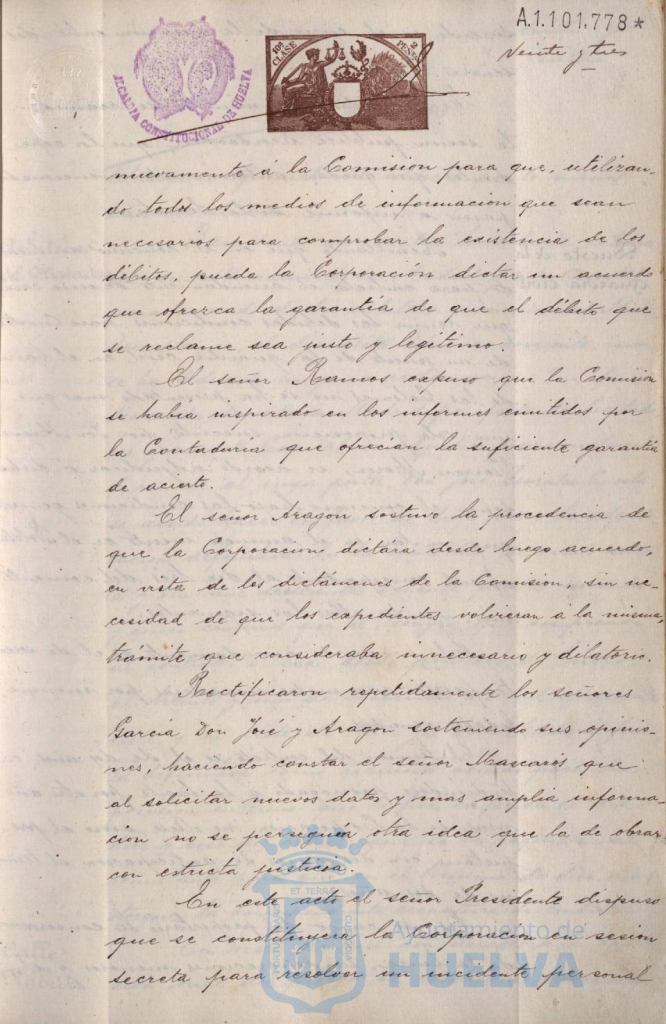 A.1.101.778*
Veinte y tres
ALCALDIA CONSTITUCIONAL DE HUELVA
10ª CLASE
2 PESETAS
nuevamente á la Comision para que, utilizan-
do todos los medios de informacion que sean
necesarios para comprobar la existencia de los
débitos, pueda la Corporación dictar un acuerdo
que ofrezca la garantía de que el débito que
se reclame sea justo y legítimo.
El señor Ramos expuso que la Comision
se habia inspirado en los informes emitidos por
la Contaduría que ofrecian la suficiente garantía
de acierto.
El señor Aragon sostuvo la procedencia de
que la Corporacion dictára desde luego acuerdo,
en vista de los dictámenes de la Comision, sin ne-
cesidad de que los expedientes volvieran á la misma,
trámite que consideraba innecesario y dilatorio.
Rectificaron repetidamente los señores
García Don José y Aragon sosteniendo sus opinio-
nes, haciendo constar el señor Mascarós que
al solicitar nuevos datos y mas amplia informa-
cion no se perseguía otra idea que la de obrar
con estricta justicia.
En este acto el señor Presidente dispuso
que se constituyera la Corporacion en sesion
secreta para resolver un incidente personal
ET TERRA
Ayuntamiento de
HUELVA